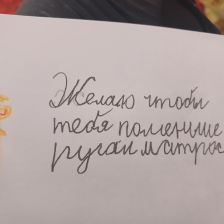 Желаю чтобы
тебя поменьше
ругал матрос